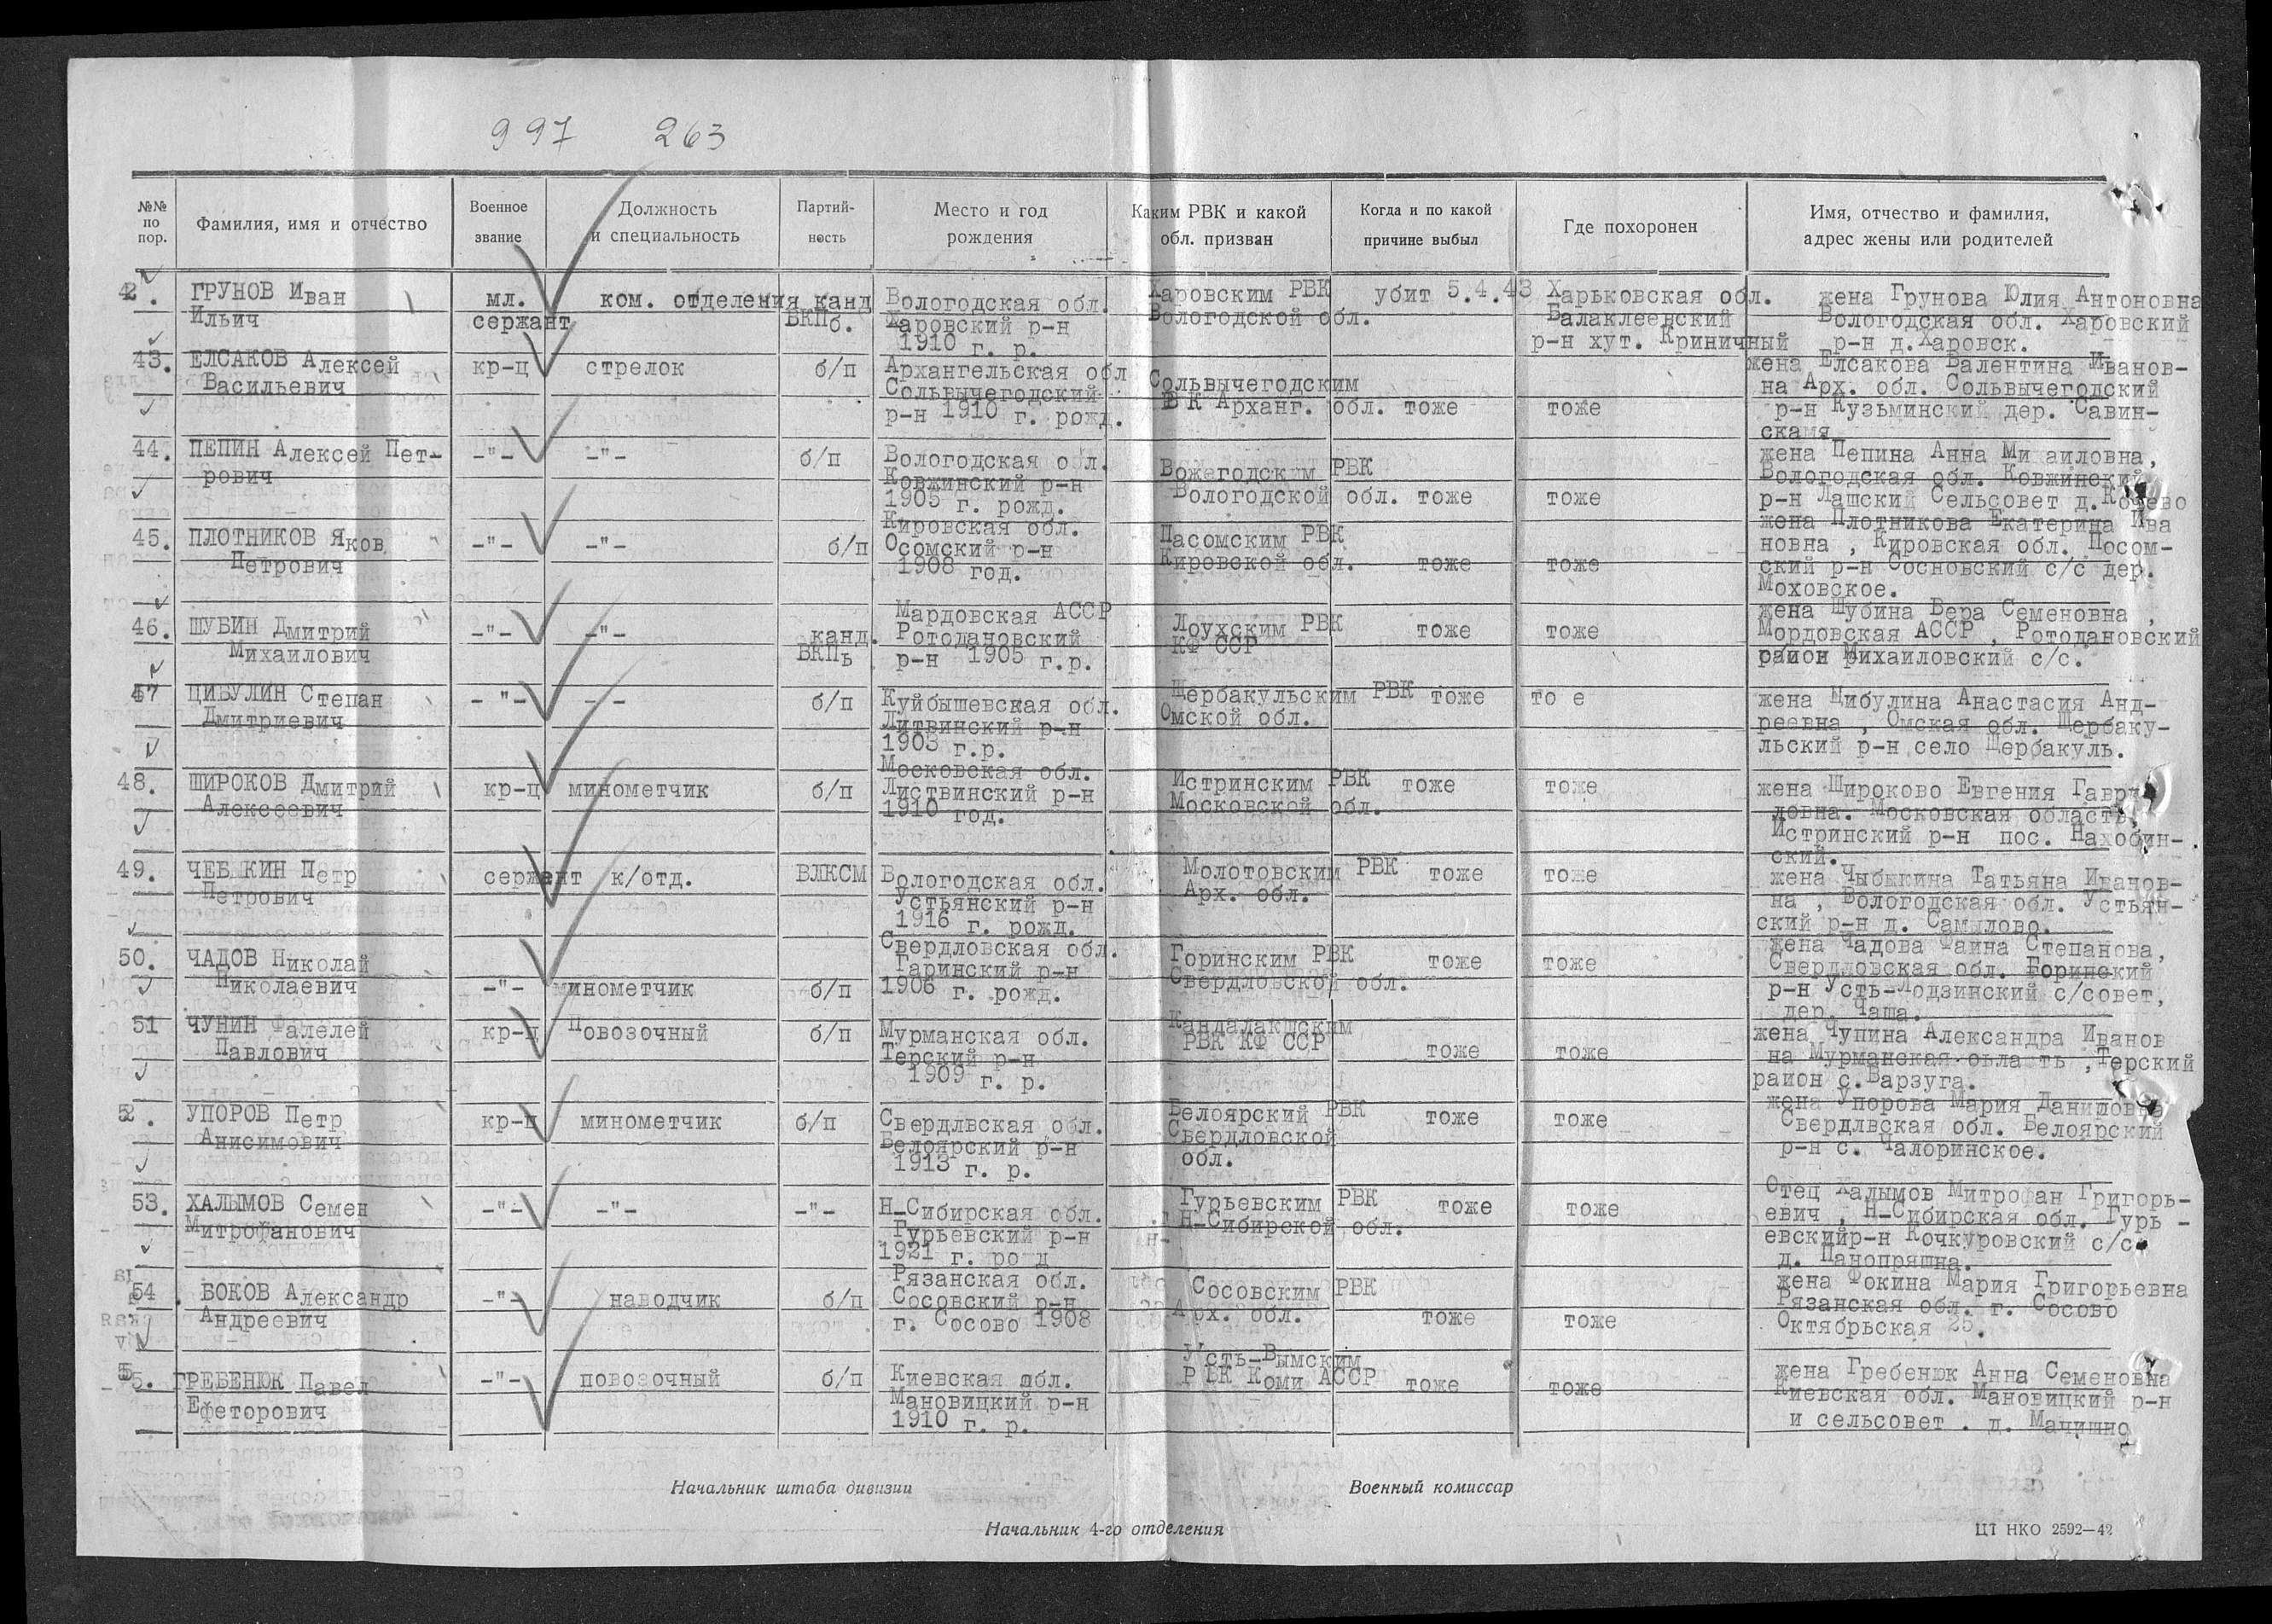 997 263
№№ по пор.
Фамилия, имя и отчество
Военное звание
Должность и специальность
Партий-ность
Место и год рождения
Каким РВК и какой обл. призван
Когда и по какой причине выбыл
Где похоронен
Имя, отчество и фамилия, адрес жены или родителей
42. ГРУНОВ Иван мл. ком. отделения канд Вологодская обл. Харовским РВК убит 5.4.43 Харьковская обл. жена Грунова Юлия Антоновна
Ильич сержант ВКПб. Харовский р-н Вологодской обл. Балаклеенский Вологодская обл. Харовский
1910 г. р. р-н хут. Криничный р-н д.Харовск.
43. ЕЛСАКОВ Алексей кр-ц стрелок б/п Архангельская обл жена Елсакова Валентина Иванов-
Васильевич Сольвычегодский Сольвычегодским на Арх. обл. Сольвычегодский
р-н 1910 г. рожд. Арханг. обл. тоже тоже р-н Кузьминский дер. Савин-
скамя
44. ПЕПИН Алексей Пет- -"- -"- б/п Вологодская обл. Вожегодским РВК жена Пепина Анна Ми аиловна,
рович Ковжинский р-н Вологодской обл. тоже тоже Вологодская обл. Ковжинский
1905 г. рожд. р-н Лашский Сельсовет
45. ПЛОТНИКОВ Яков -"- -"- б/п Кировская обл. Пасомским РВК жена Плотникова Екатерина Ива
Петрович Осомский р-н Кировской обл. тоже тоже новна, Кировская обл. Посом-
1908 год. ский р-н Сосновский с/с дер.
Моховское.
46. ШУБИН Дмитрий -"- -"- канд. Мардовская АССР Лоухским РВК тоже тоже жена Шубина Вера Семеновна,
Михаилович ВКПь Ротодановский КФ ССР Мордовская АССР, Ротодановский
р-н 1905 г.р. раион Михаиловский с/с.
47 ЦИБУЛИН Степан -"- - - б/п Куйбышевская обл. Щербакульским РВК тоже то е жена Цибулина Анастасия Анд-
Дмитриевич Литвинский р-н Омской обл. реевна, Омская обл. Щербаку-
1903 г.р. льский р-н село Щербакуль.
48. ШИРОКОВ Дмитрий кр-ц минометчик б/п Московская обл. Истринским РВК тоже тоже жена Широково Евгения Гаври
Алексеевич Листвинский р-н Московской обл. ловна. Московская область,
1910 год. Истринский р-н пос. Нахобин-
ский.
49. ЧЕБЫКИН Петр сержант к/отд. ВЛКСМ Вологодская обл. Молотовским РВК тоже тоже жена Чыбыкина Татьяна Иванов-
Петрович Устьянский р-н Арх. обл. на, Вологодская обл. Устьян-
1916 г. рожд. ский р-н д. Самылово.
50. ЧАДОВ Николай -"- минометчик б/п Свердловская обл. Горинским РВК тоже тоже жена Чадова Фаина Степанова,
Николаевич Гаринский р-н Свердловской обл. Свердловская обл. Горинский
1906 г. рожд. р-н Усть-Лодзинский с/совет,
дер. Чаша.
51 ЧУНИН Фалелей кр-ц Повозочный б/п Мурманская обл. Кандалакшским тоже тоже жена Чупина Александра Иванов
Павлович Терский р-н РВК КФ ССР на Мурманская обла ть, Терский
1909 г. р. раион с.Варзуга.
52. УПОРОВ Петр кр-ц минометчик б/п Свердлвская обл. Белоярский РВК тоже тоже жена Упорова Мария Даниловна
Анисимович Белоярский р-н Свердловской Свердлвская обл. Белоярский
1913 г. р. обл. р-н с. Чалоринское.
53. ХАЛЫМОВ Семен -"- -"- -"- Н-Сибирская обл. Гурьевским РВК тоже тоже Отец Халымов Митрофан Григорь-
Митрофанович Гурьевский р-н Н-Сибирской обл. евич, Н-Сибирская обл. Гурь-
1921 г. ро д евскийр-н Кочкуровский с/с
д. Панопряшна.
54. БОКОВ Александр -"- наводчик б/п Рязанская обл. Сосовским РВК тоже тоже жена Фокина Мария Григорьевна
Андреевич Сосовский р-н Арх. обл. Рязанская обл. г. Сосово
г. Сосово 1908 Октябрьская 25.
55. ГРЕБЕНЮК Павел -"- повозочный б/п Киевская обл. Усть-Вымским тоже тоже жена Гребенюк Анна Семеновна
Ефеторович Мановицкий р-н РВК Коми АССР Киевская обл. Мановицкий р-н
1910 г. р. и сельсовет. д.
Начальник штаба дивизии
Военный комиссар
Начальник 4-го отделения
ЦТ НКО 2592—42